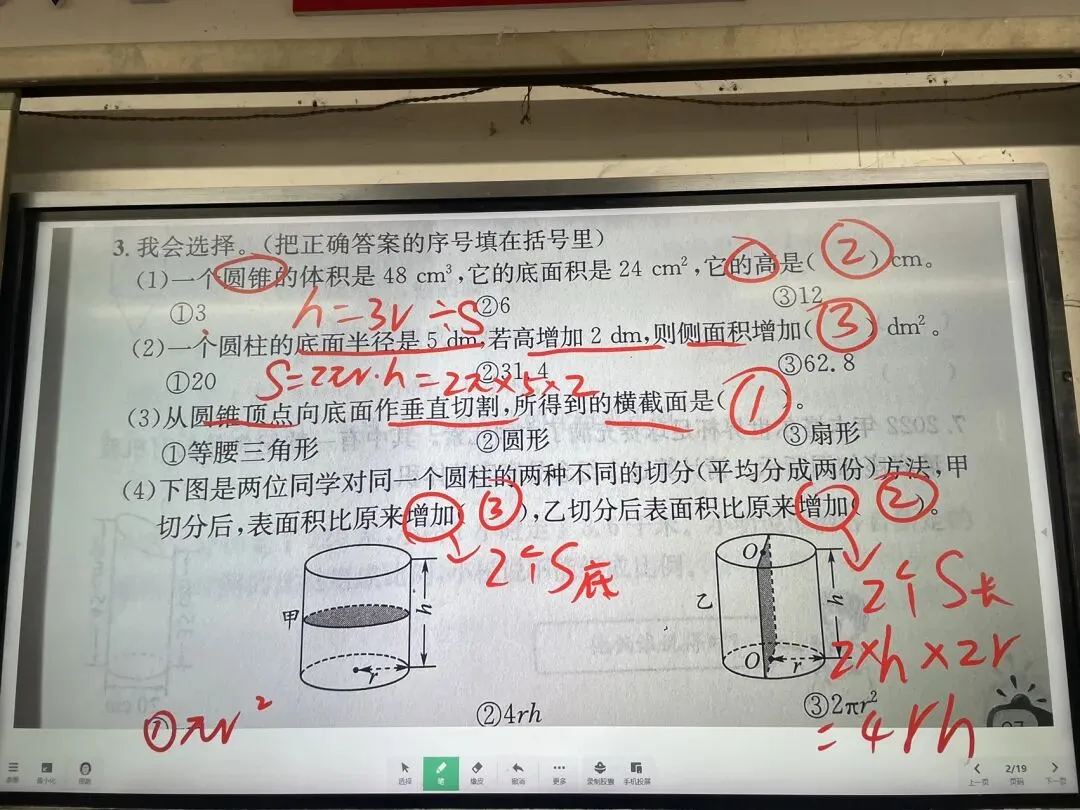 3. 我会选择。（把正确答案的序号填在括号里）
(1)一个圆锥的体积是 48 cm³，它的底面积是 24 cm²，它的高是( ② )cm。
①3 ②6 ③12
h=3V÷S
(2)一个圆柱的底面半径是 5 dm，若高增加 2 dm，则侧面积增加( ③ ) dm²。
①20 ②31.4 ③62.8
S=2πr·h=2π×5×2
(3)从圆锥顶点向底面作垂直切割，所得到的横截面是( ① )。
①等腰三角形 ②圆形 ③扇形
(4)下图是两位同学对同一个圆柱的两种不同的切分(平均分成两份)方法，甲
切分后，表面积比原来增加( ③ )，乙切分后表面积比原来增加( ② )。
2个S底
2个S长
甲 h r
乙 O O h r
2×h×2r
=4rh
①πr² ②4rh ③2πr²
最小化
选择 笔 橡皮 撤销 更多 录制胶囊 手机投屏
上一页 2/19 页码 下一页